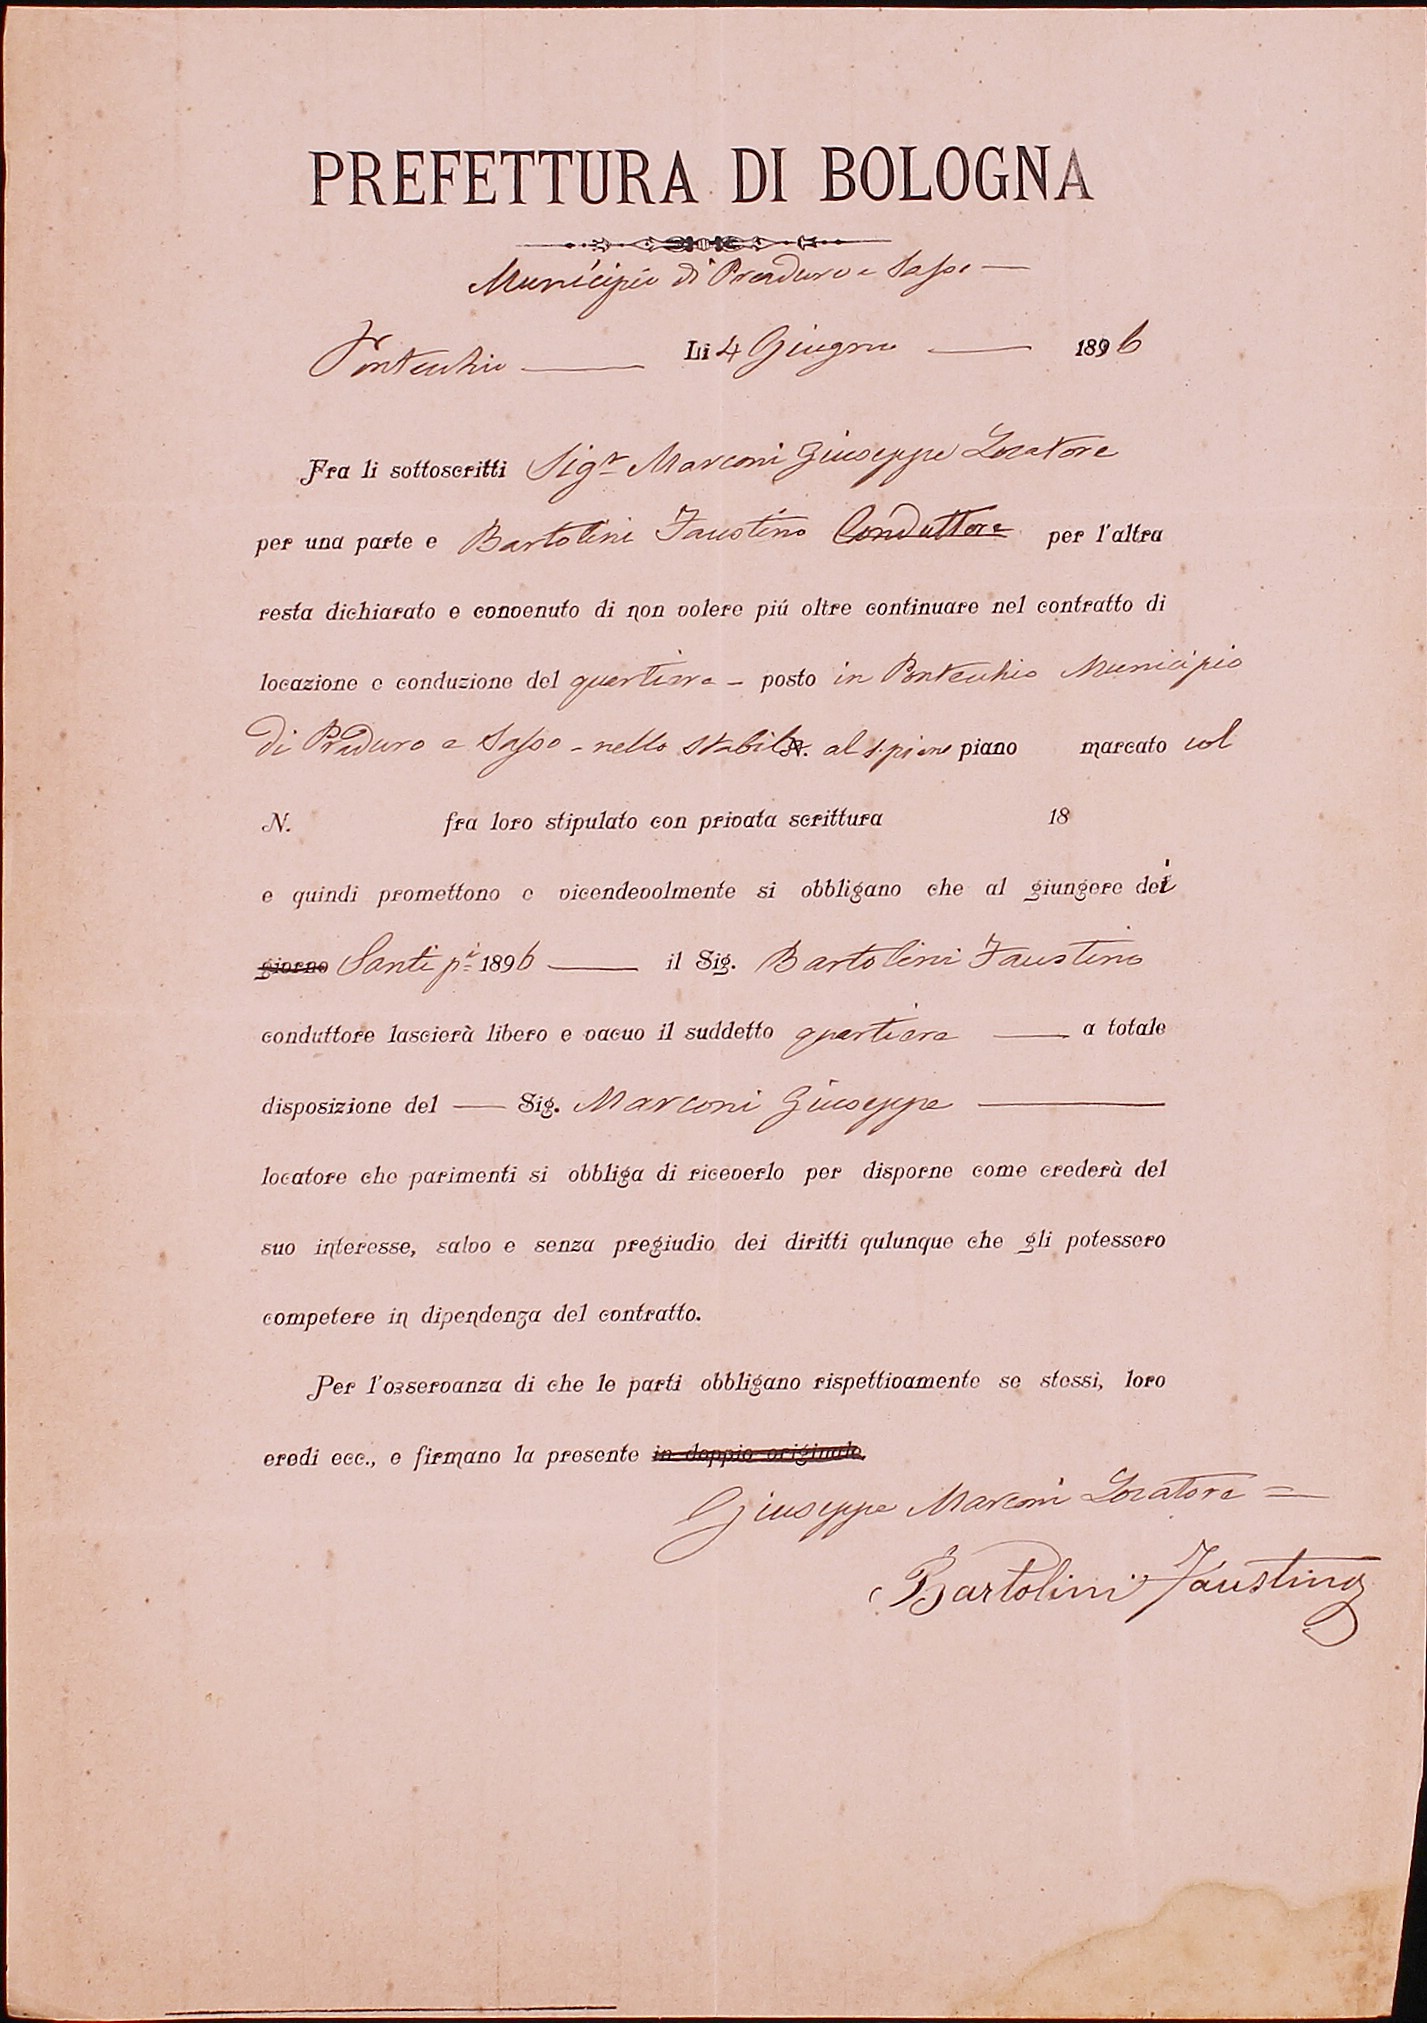 PREFETTURA DI BOLOGNA
Municipio di Praduro e Sasso
Pontecchio Li 4 Giugno 1896
Fra li sottoscritti Sigr Marconi Giuseppe Locatore
per una parte e Bartolini Faustino Conduttore per l'altra
resta dichiarato e convenuto di non volere piú oltre continuare nel contratto di
locazione e conduzione del quartiere - posto in Pontecchio Municipio
di Praduro e Sasso - nello stabile N. al piano marcato col
N. fra loro stipulato con privata scrittura 18
e quindi promettono e vicendevolmente si obbligano che al giungere dei
giorno Santi pi 1896 il Sig. Bartolini Faustino
conduttore lascierà libero e vacuo il suddetto quartiere a totale
disposizione del Sig. Marconi Giuseppe
locatore che parimenti si obbliga di riceverlo per disporne come crederà del
suo interesse, salvo e senza pregiudio dei diritti qulunque che gli potessero
competere in dipendenza del contratto.
Per l'osservanza di che le parti obbligano rispettivamente se stessi, loro
eredi ecc., e firmano la presente in doppio originale.
Giuseppe Marconi Locatore =
Bartolini Faustino